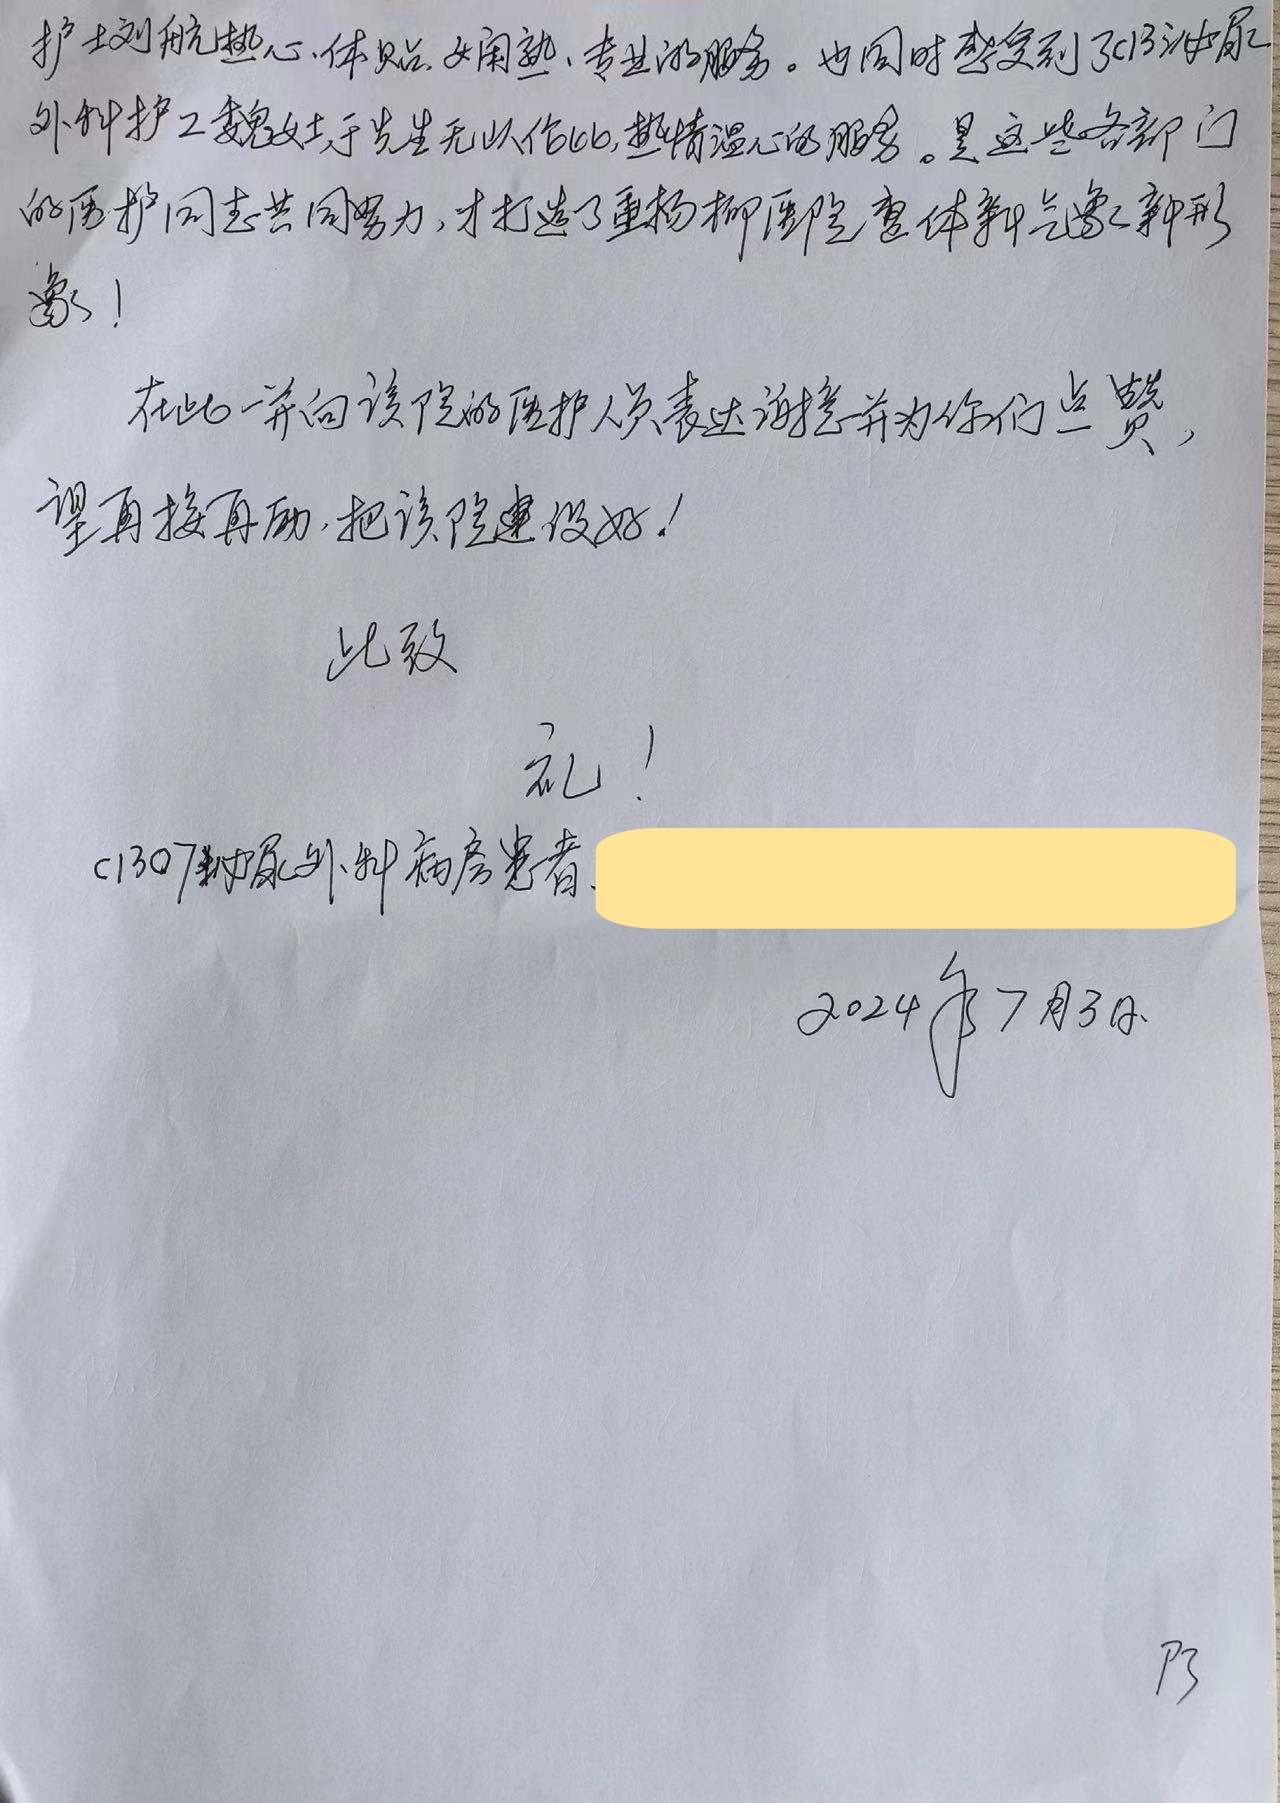 护士刘航热心、体贴、娴熟、专业的服务。也同时享受到了C13泌尿
外科护工魏女士、于先生无以伦比,热情温心的服务。是这些各部门
的医护同志共同努力,才打造了垂杨柳医院整体新气象新形
象!
在此一并向该院的医护人员表达谢意并为你们点赞,
望再接再励,把该院建设好!
此致
礼!
C1307泌尿外科病房患者、
2024年7月3日.
P3